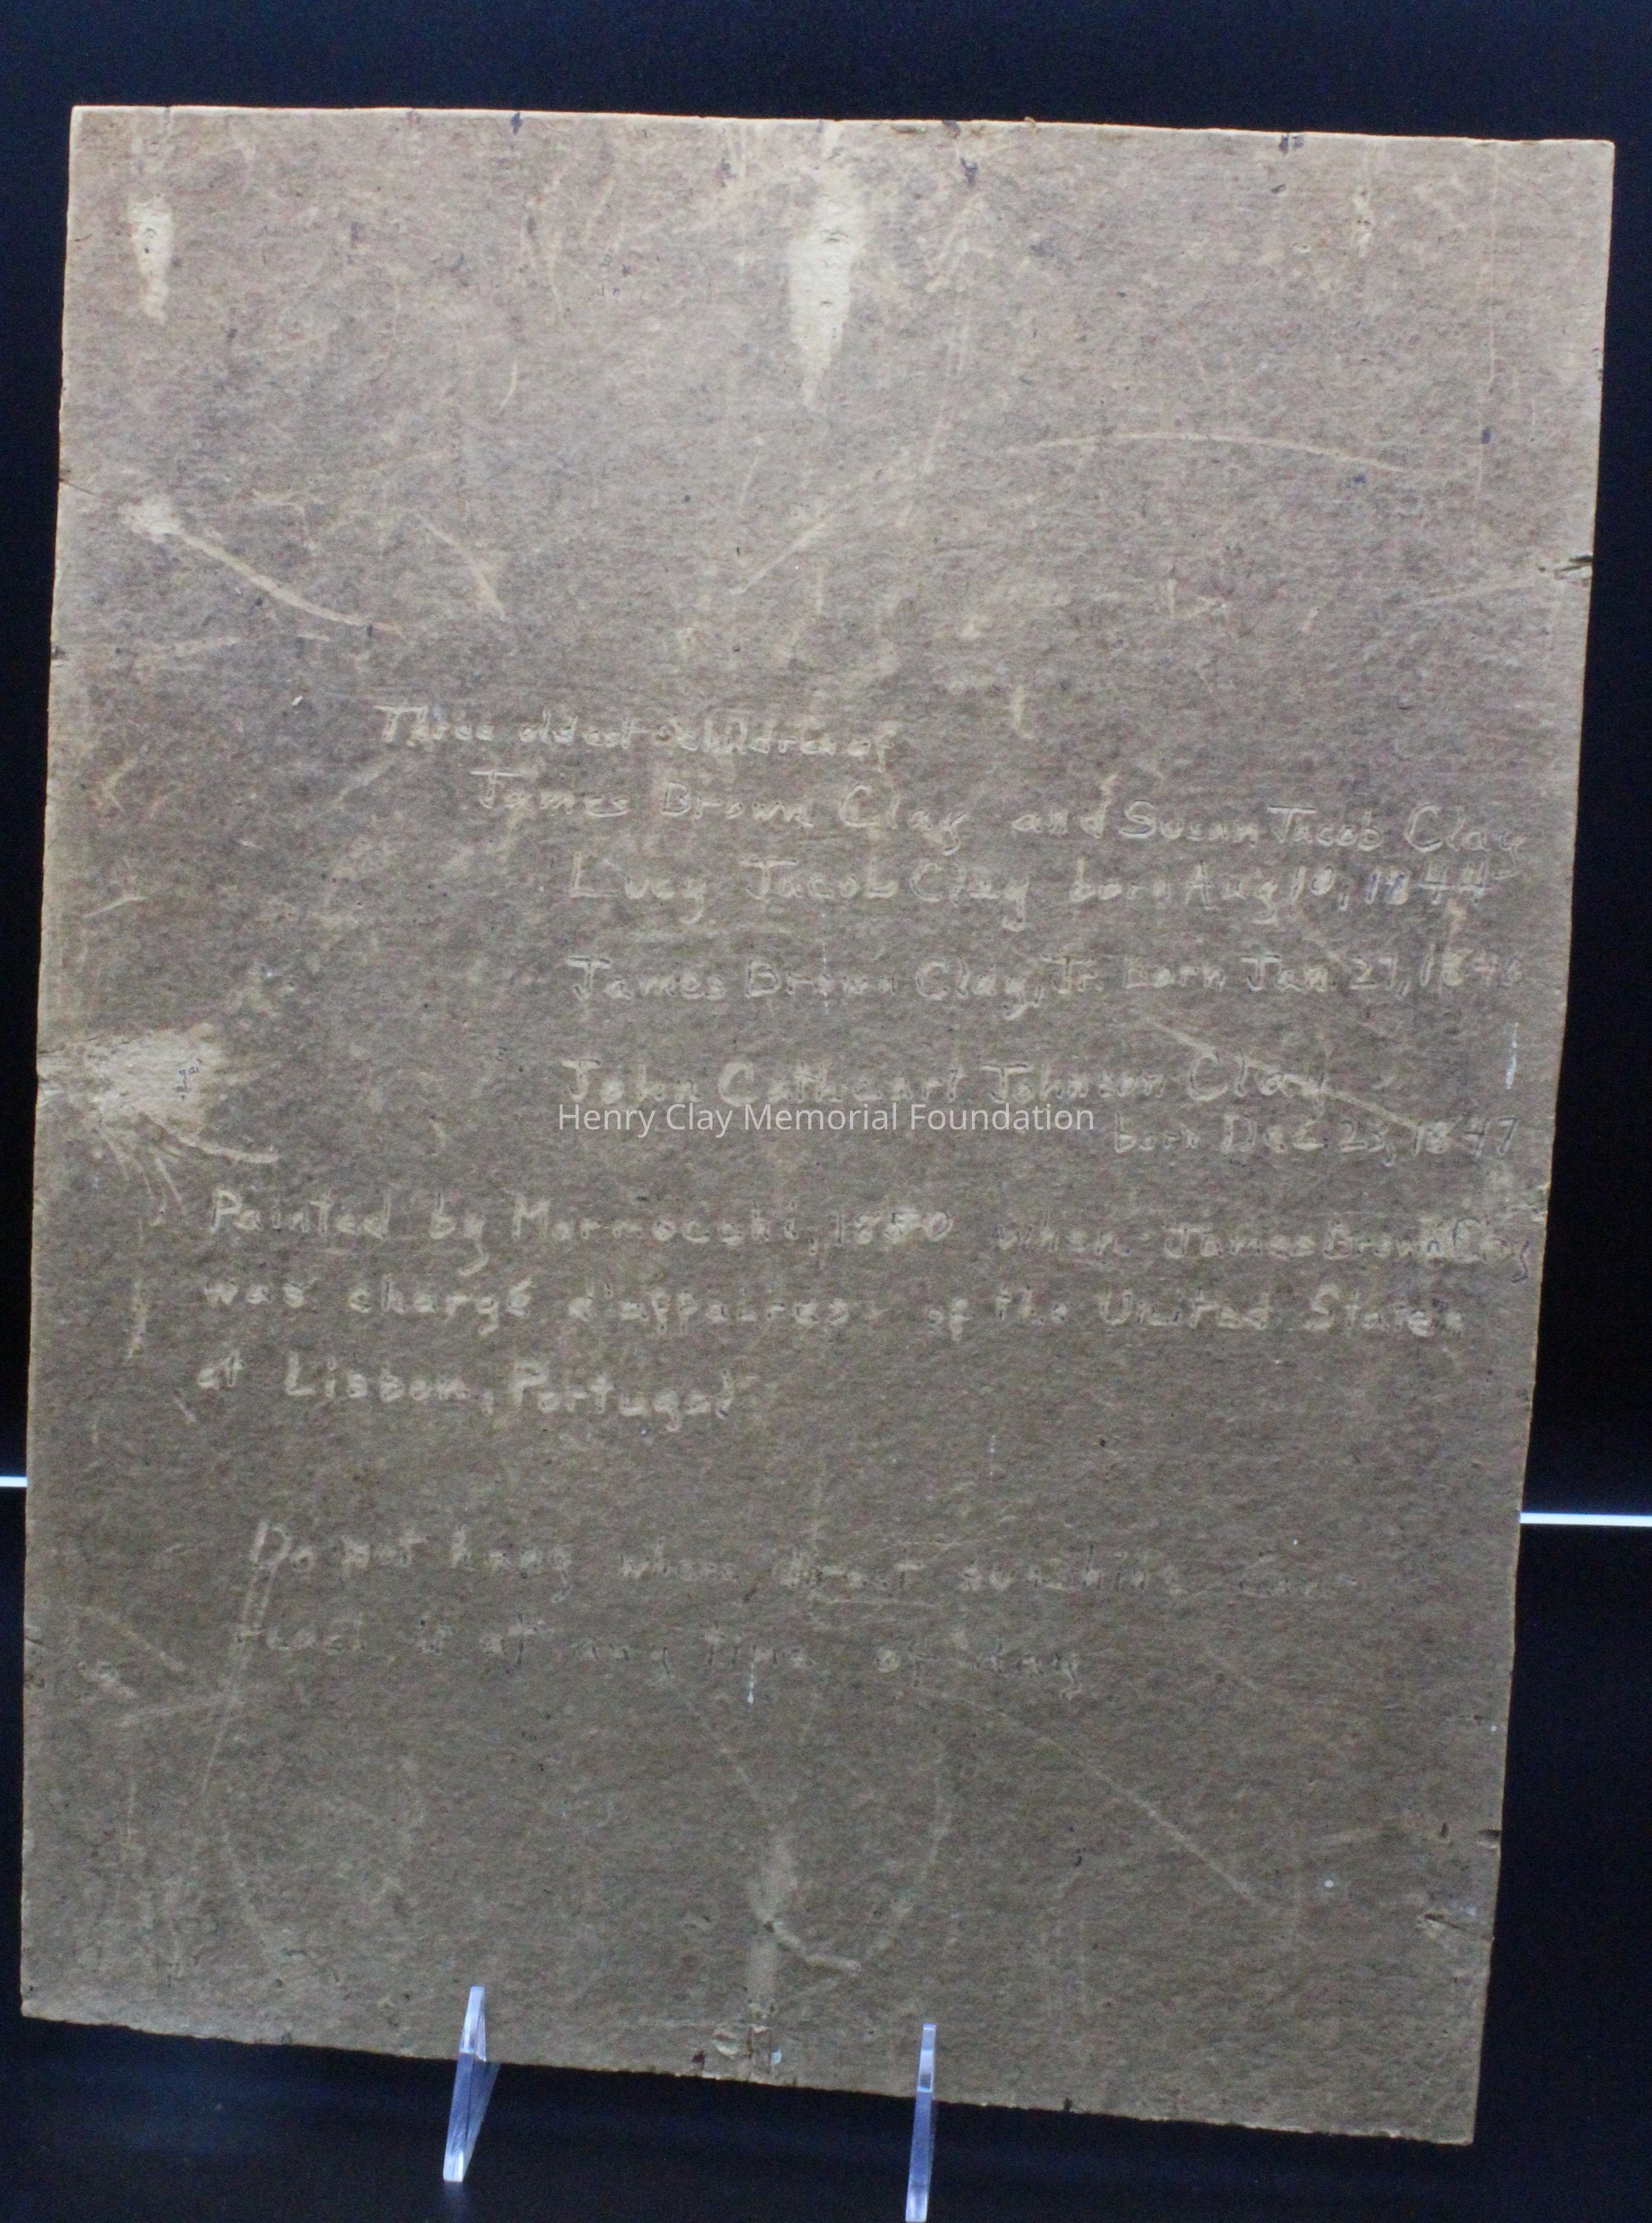 Three oldest children of
James Brown Clay and Susan Jacob Clay
Lucy Jacob Clay born Aug 10, 1844
James Brown Clay, Jr. born Jan 27, 1846
John Cathcart Johnson Clay
Henry Clay Memorial Foundation
born Dec. 23, 1847
Painted by Marmocchi, 1850 when James Brown Clay
was chargé d'affaires of the United States
at Lisbon, Portugal
Do not hang where direct sunshine can
it at any time of day